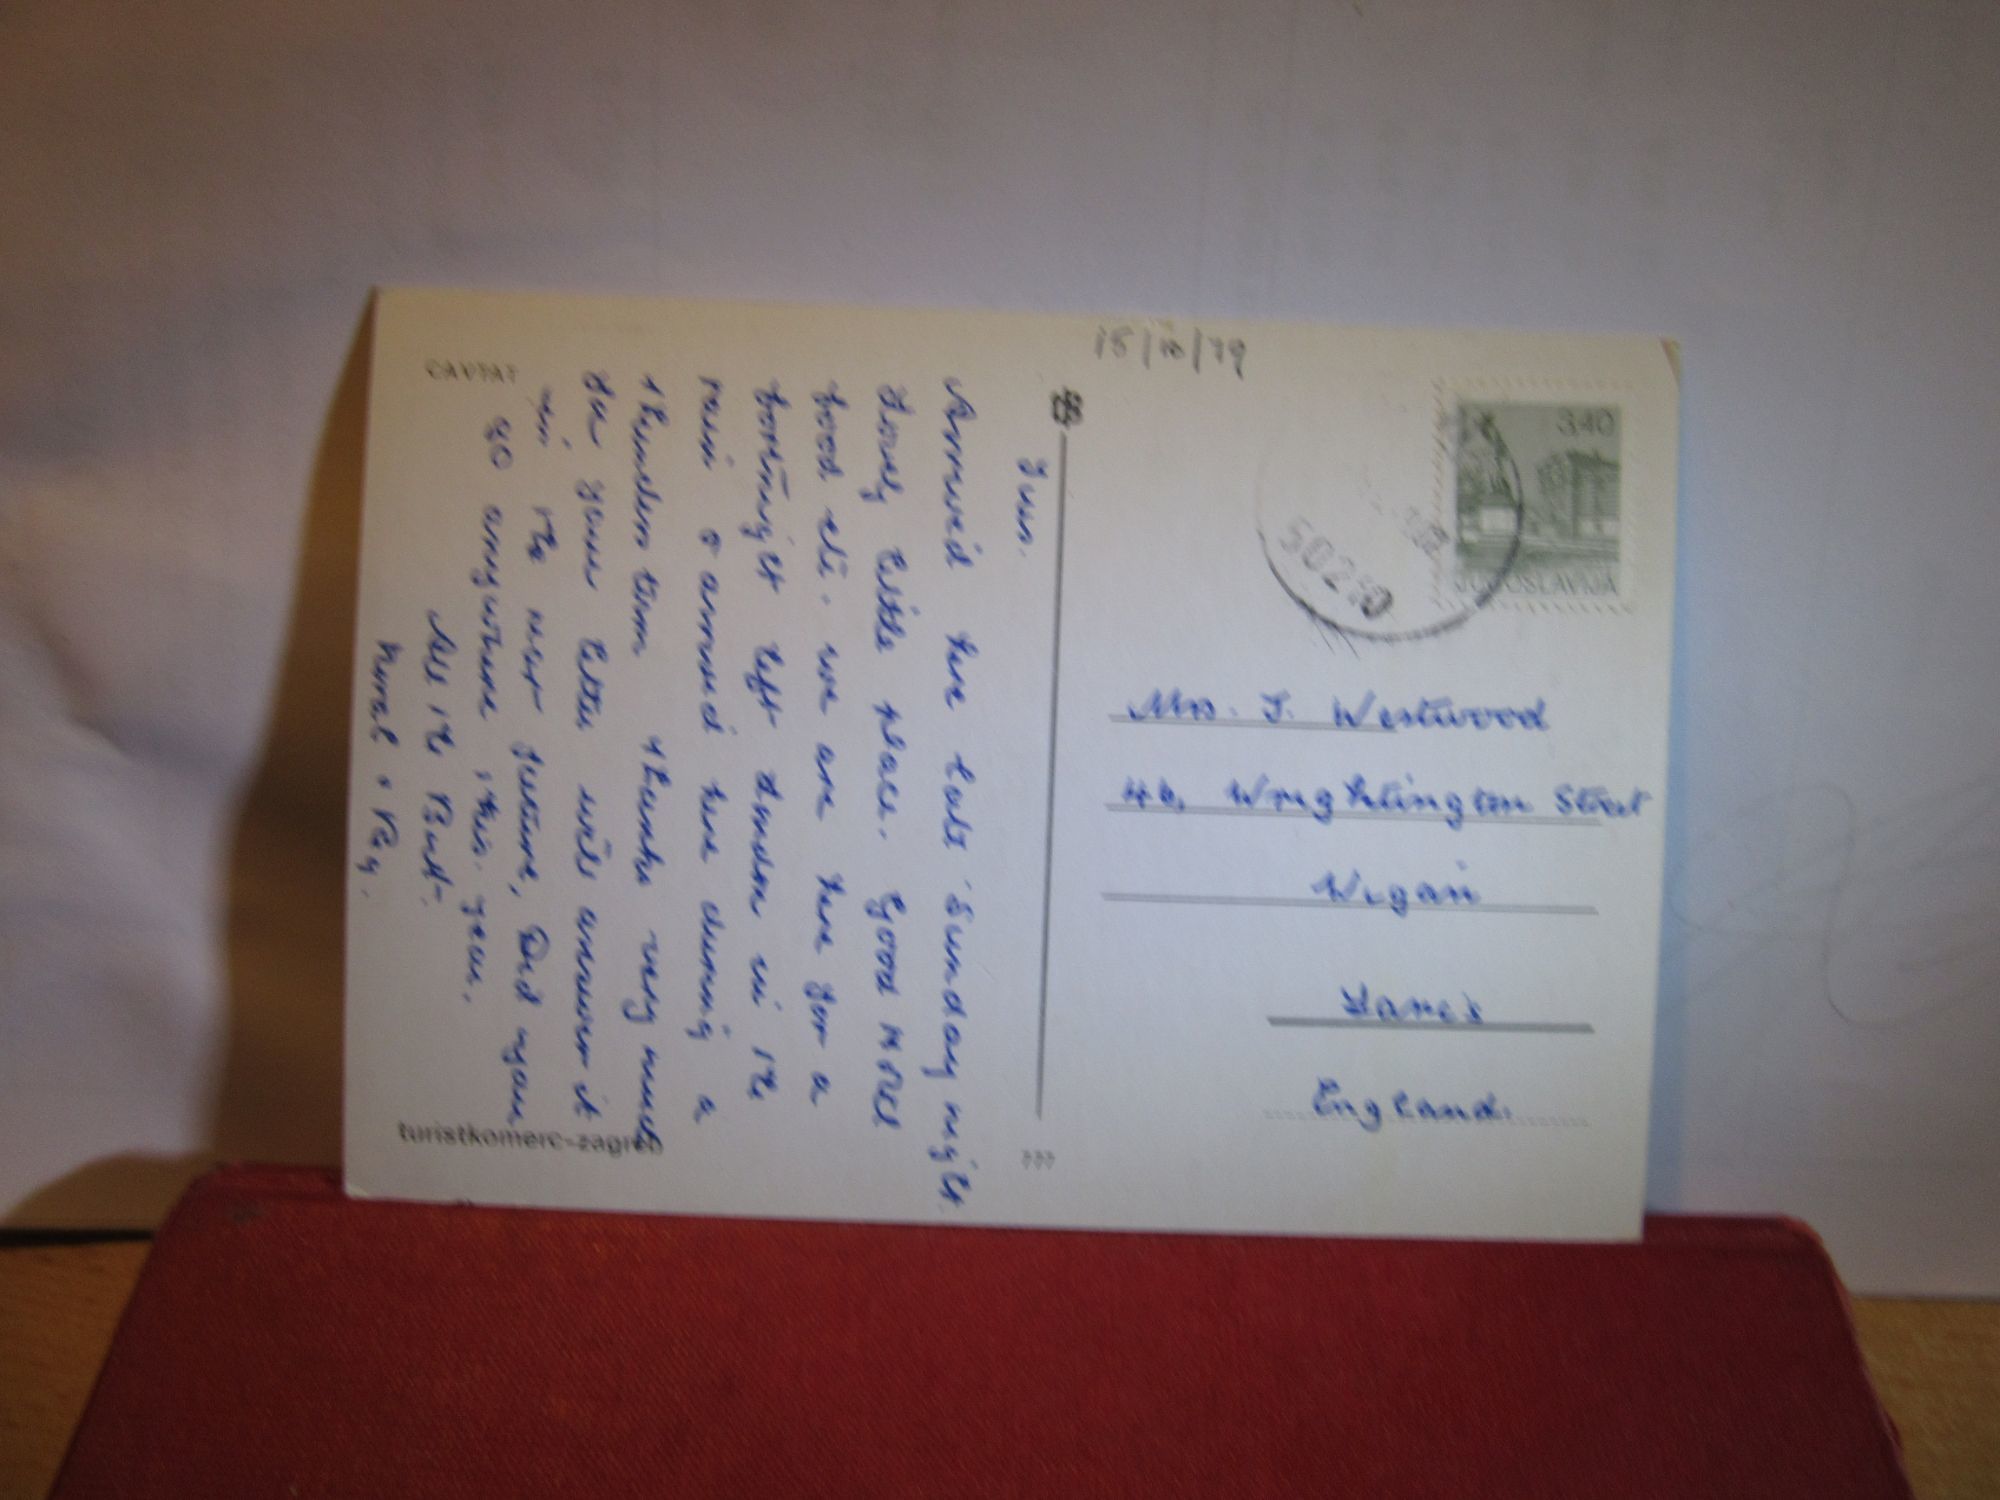 CAVTAT
15/10/79
Arrived here late Sunday night
Lovely little place. Good Hotel
food etc. we are here for a
fortnight left London in the
rain & arrived here during a
thunderstorm Thanks very much
for your letter will answer it
in the near future, Did you
go anywhere this year.
All the Best.
& Reg.
turistkomerc-zagreb
777
340
JUGOSLAVIJA
50210
Mrs. J. Westwood
46, Wrightington Street
Wigan
Lancs
England.